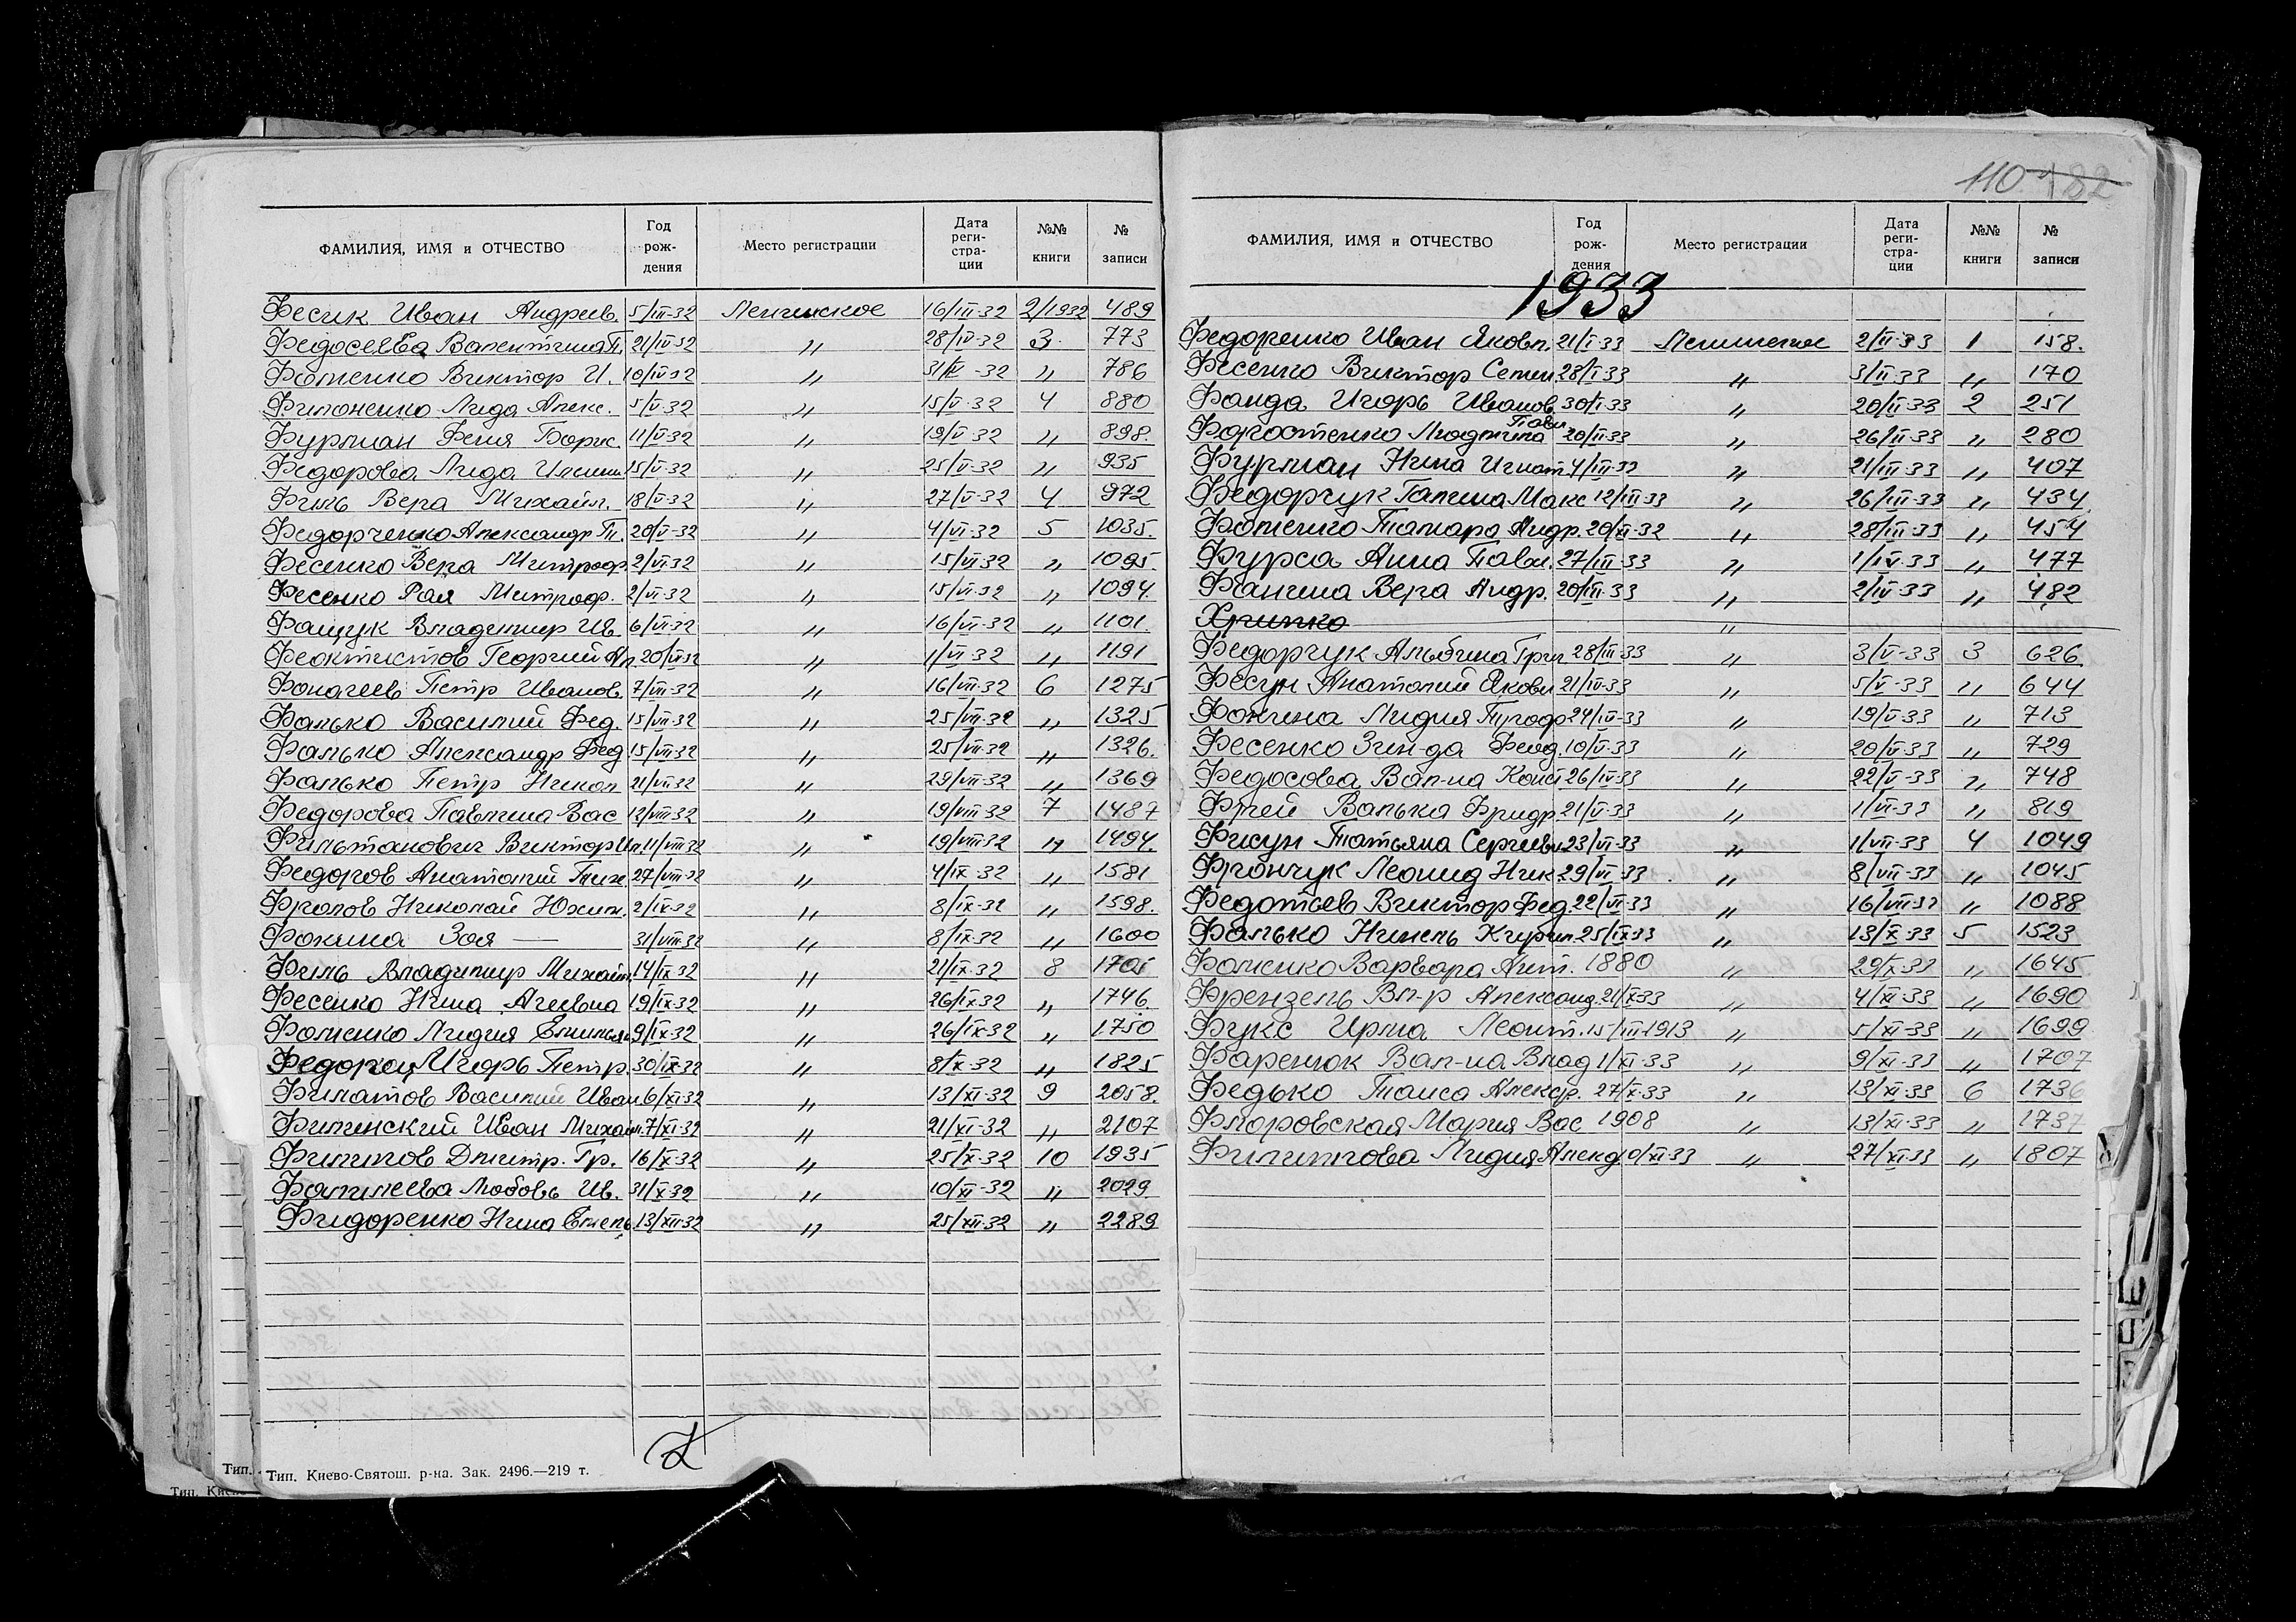 ФАМИЛИЯ, ИМЯ и ОТЧЕСТВО Год рождения Место регистрации Дата регистрации №№ книги № записи
Фесик Иван Андреев. 5/III-32 Ленинское 16/III-32 2/1932 489
Федосеева Валентина П. 21/IV-32 " 28/IV-32 3 773
Фоменко Виктор И. 10/IV-32 " 786
Филоненко Лида Алекс. 5/V-32 " 15/V-32 4 880
Фурман Феня Борис. 11/V-32 " 19/V-32 " 898
Федорова Лида 15/V-32 " 25/V-32 " 935
Филь Вера Михайл. 18/V-32 " 27/V-32 4 972
Федорченко Александр П. 20/V-32 " 4/VI-32 5 1035
Фесенко Вера Митроф. 2/VI-32 " 15/VI-32 " 1095
Фесенко Рая Митроф. 2/VI-32 " 15/VI-32 " 1094
Фащук Владимир Ив. 6/VI-32 " 16/VI-32 " 1101
Феоктистов Георгий " " 1191
Фоначев Петр Иванов. 7/VII-32 " 16/VII-32 6 1275
Фалько Василий Фед. 15/VII-32 " 25/VII-32 " 1325
Фалько Александр Фед 15/VII-32 " 25/VII-32 " 1326
Фалько Петр Никол 21/VII-32 " 29/VII-32 " 1369
Федорова Павлина Вас 12/VIII-32 " 19/VIII-32 7 1487
Фильтанович Виктор 11/VIII-32 " 19/VIII-32 " 1494
Федоров Анатолий Тих 27/VIII-32 " 4/IX-32 " 1581
Фролов Николай Юхим. 2/IX-32 " 8/IX-32 " 1598
Фокина Зоя — 31/VIII-32 " 8/IX-32 " 1600
Филь Владимир Михайл 14/IX-32 " 21/IX-32 8 1705
Фесенко Нина Агеевна 19/IX-32 " 26/IX-32 " 1746
Фоменко Лидия Емельян 9/IX-32 " 26/IX-32 " 1750
Федорец Игорь Петр. 30/IX-32 " 8/X-32 " 1825
Филатов Василий Иван 6/XI-32 " 13/XI-32 9 2058
Филинский Иван Михайл. 7/XI-32 " 21/XI-32 " 2107
Филипов Дмитр. Гр. 16/X-32 " 25/X-32 10 1935
Фамилеева Любовь Ив. 31/X-32 " 10/XI-32 " 2029
Фидоренко Нина Емель 13/XII-32 " 25/XII-32 " 2289
Тип. Киево-Святош. р-на. Зак. 2496.—219 т.
110 182
ФАМИЛИЯ, ИМЯ и ОТЧЕСТВО Год рождения Место регистрации Дата регистрации №№ книги № записи
1933
Федоренко Иван Яковл. 21/I-33 Ленинское 2/II-33 1 158
Фесенко Виктор Семен. 28/I-33 " 3/II-33 " 170
Фанда Игорь Иванов. 30/I-33 " 20/II-33 2 251
Форостенко Людмила Павл 20/II-33 " 26/II-33 " 280
Фурман Нина Игнат 4/III-33 " 21/III-33 " 407
Федорчук Галина Макс 12/III-33 " 26/III-33 " 434
Фоменко Тамара Андр. 20/XI-32 " 28/III-33 " 454
Фурса Анна Павл. 27/III-33 " 1/IV-33 " 477
Фанина Вера Андр. 20/III-33 " 2/IV-33 " 482
Хрипко "
Федорчук Альбина Григ 28/III-33 " 3/V-33 3 626
Фесун Анатолий Яковл 21/IV-33 " 5/V-33 " 644
Фокина Лидия 24/IV-33 " 19/V-33 " 713
Фесенко Зин-да Феод. 10/V-33 " 20/V-33 " 729
Федосова Вал-на Конст 26/IV-33 " 22/V-33 " 748
Фрей Валька Фридр 21/V-33 " 1/VI-33 " 819
Фисун Татьяна Сергеевн 23/VI-33 " 1/VII-33 4 1049
Фрончук Леонид Ник. 29/VI-33 " 8/VII-33 " 1045
Федотьев Виктор Фед. 22/VI-33 " 16/VII-33 " 1088
Фалько Нинель Кирил. 25/IX-33 " 13/X-33 5 1523
Фоменко Варвара Ант. 1880 " 29/X-33 " 1645
Френзель Вл-р Александ. 21/X-33 " 4/XI-33 " 1690
Фукс Ирма Леонт. 15/III-1913 " 5/XI-33 " 1699
Фаренюк Вал-на Влад 1/XI-33 " 9/XI-33 " 1707
Федько Таиса Алексдр. 27/X-33 " 13/XI-33 6 1736
Фларовская Мария Вас 1908 " 13/XI-33 " 1737
Филиппова Лидия " 27/XI-33 " 1807